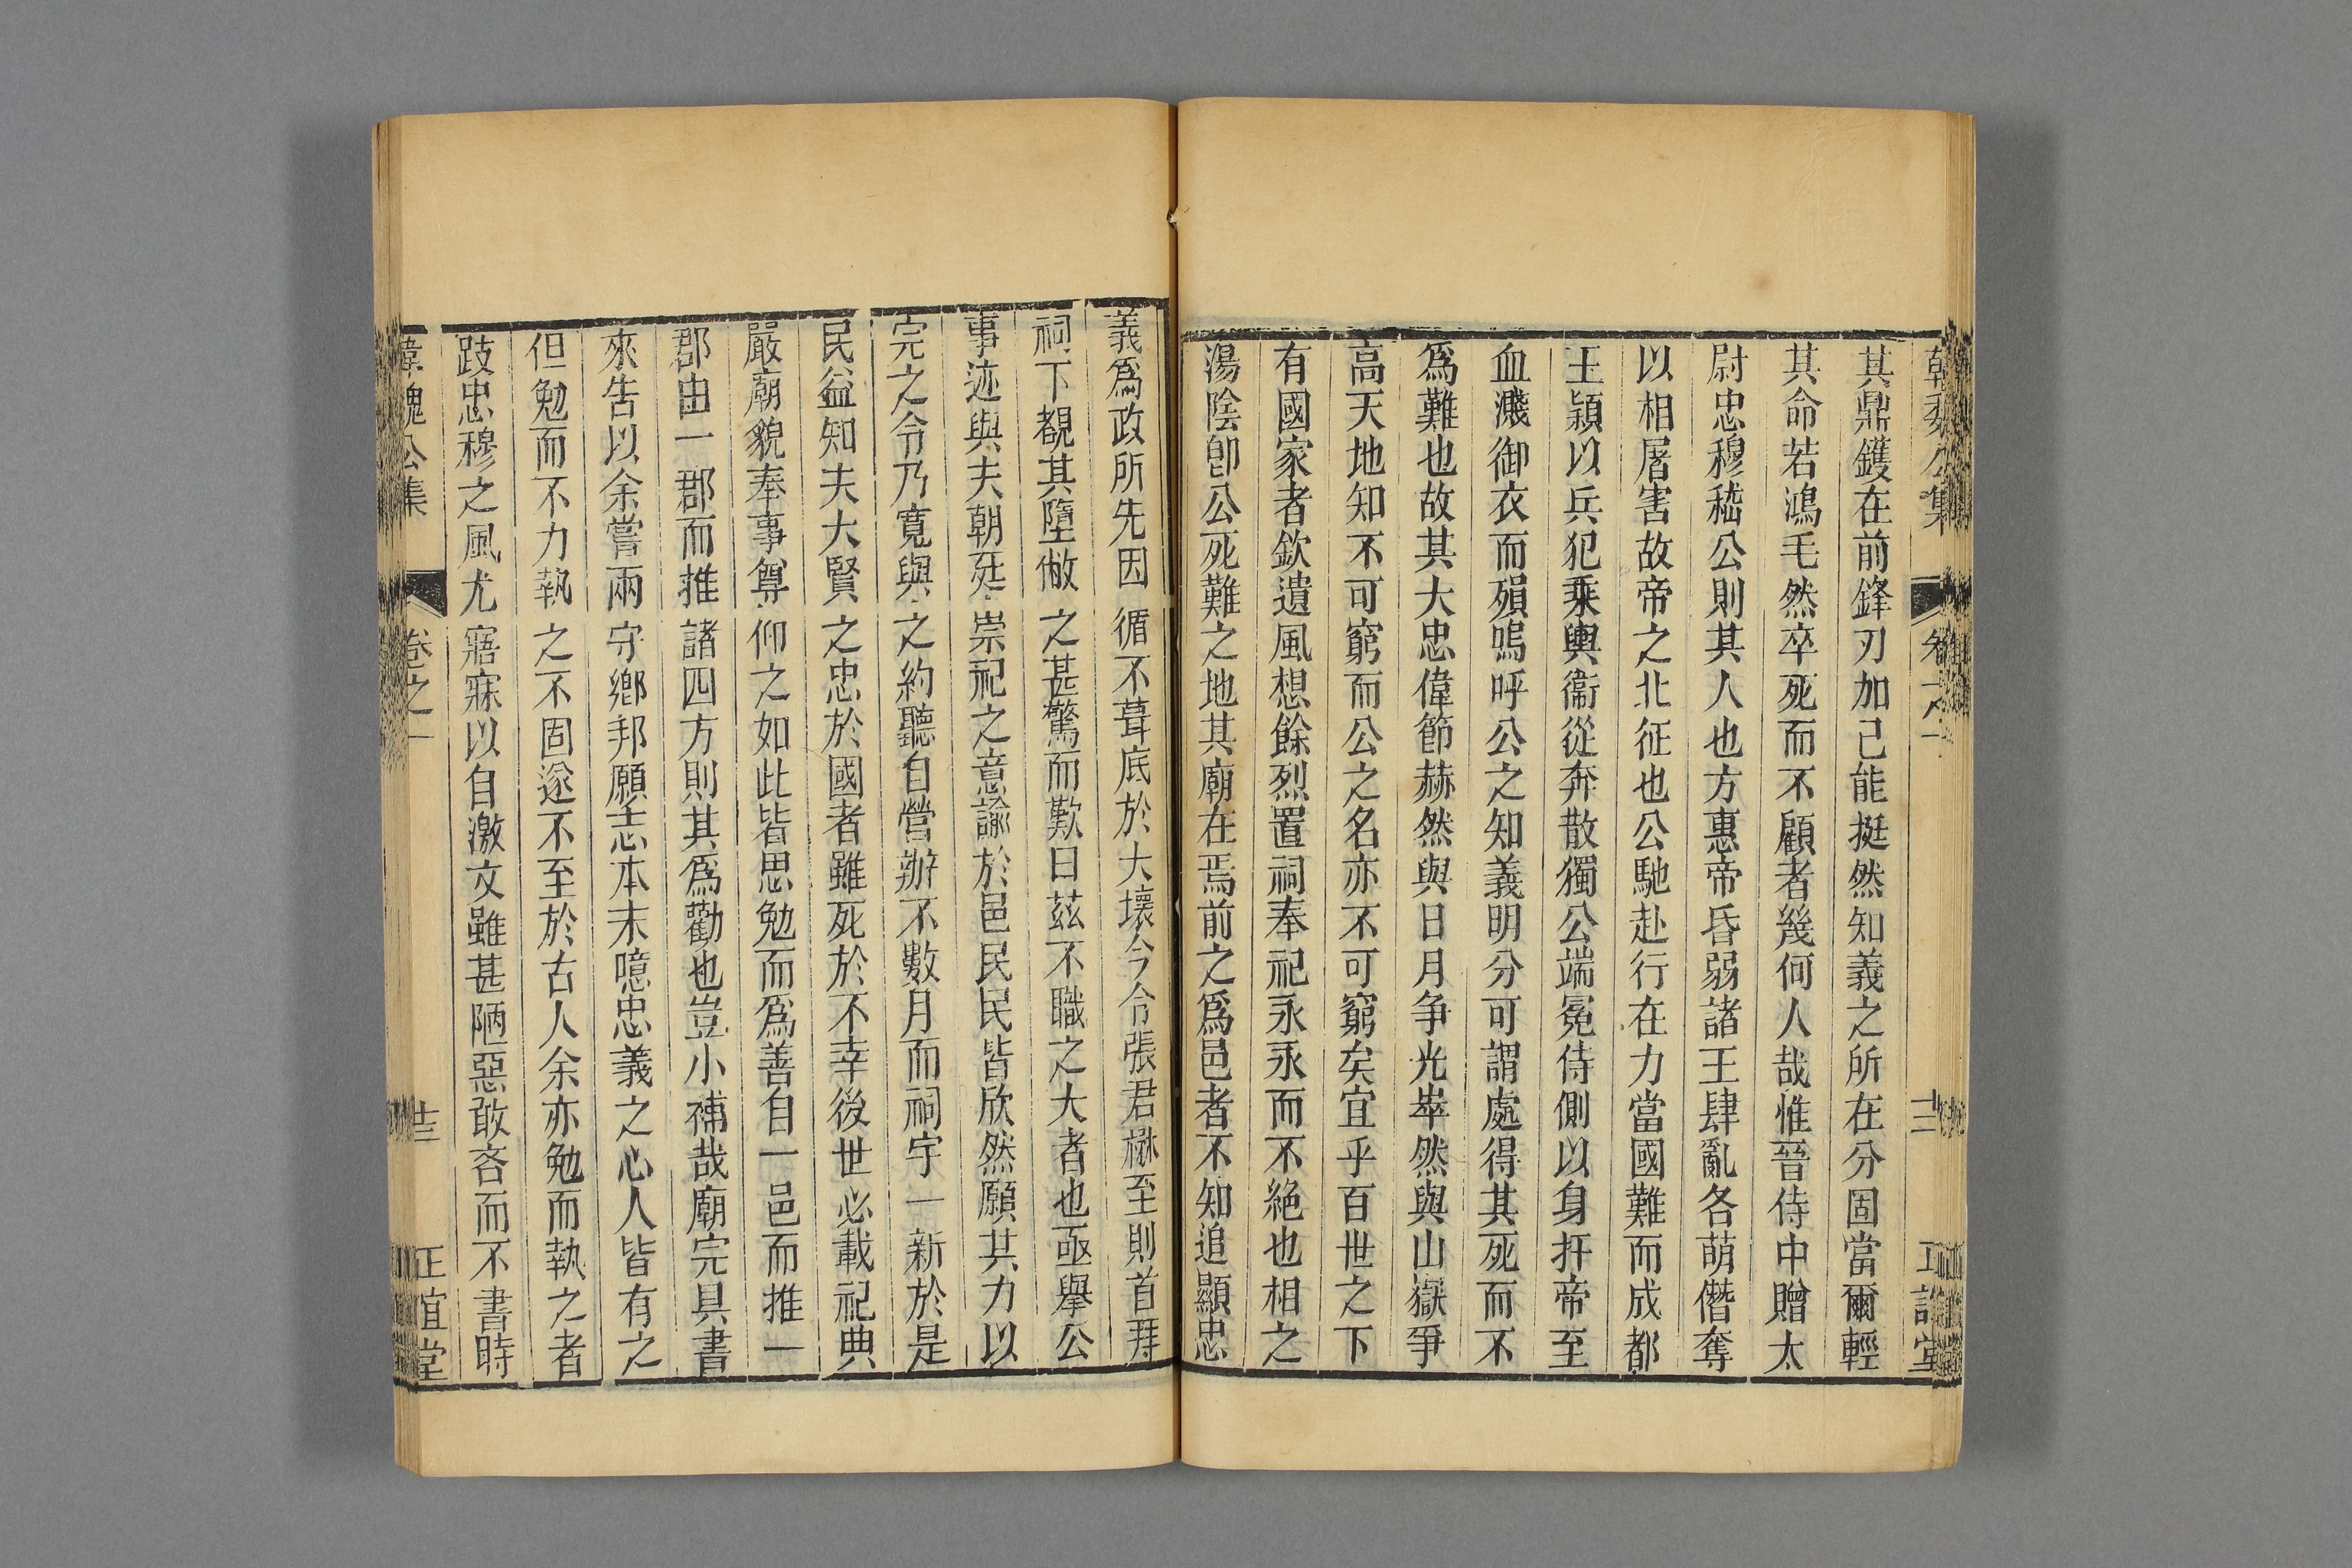 韓魏公集 卷之一 十二 正誼堂
其鼎鑊在前鋒刃加己能挺然知義之所在分固當爾輕
其命若鴻毛然卒死而不顧者幾何人哉惟晉侍中贈太
尉忠穆嵇公則其人也方惠帝昏弱諸王肆亂各萌僭奪
以相屠害故帝之北征也公馳赴行在力當國難而成都
王穎以兵犯乘輿衞從奔散獨公端冕侍側以身扞帝至
血濺御衣而殞嗚呼公之知義明分可謂處得其死而不
爲難也故其大忠偉節赫然與日月争光崒然與山嶽爭
高天地知不可窮而公之名亦不可窮矣宜乎百世之下
有國家者欽遺風想餘烈置祠奉祀永永而不絶也相之
湯陰卽公死難之地其廟在焉前之爲邑者不知追顯忠
義爲政所先因循不葺底於大壞今令張君楙至則首拜
祠下覩其墮敝之甚驚而歎曰茲不職之大者也亟舉公
事迹與夫朝廷崇祀之意諭於邑民民皆欣然願其力以
完之令乃寛與之約聽自營辦不數月而祠宇一新於是
民益知夫大賢之忠於國者雖死於不幸後世必載祀典
嚴廟貌奉事尊仰之如此皆思勉而爲善自一邑而推一
郡由一郡而推諸四方則其爲勸也豈小補哉廟完具書
來告以余嘗兩守鄉邦願志本末噫忠義之心人皆有之
但勉而不力執之不固遂不至於古人余亦勉而執之者
跂忠穆之風尤寤寐以自激文雖甚陋惡敢吝而不書時
韓魏公集 卷之一 十三 正誼堂